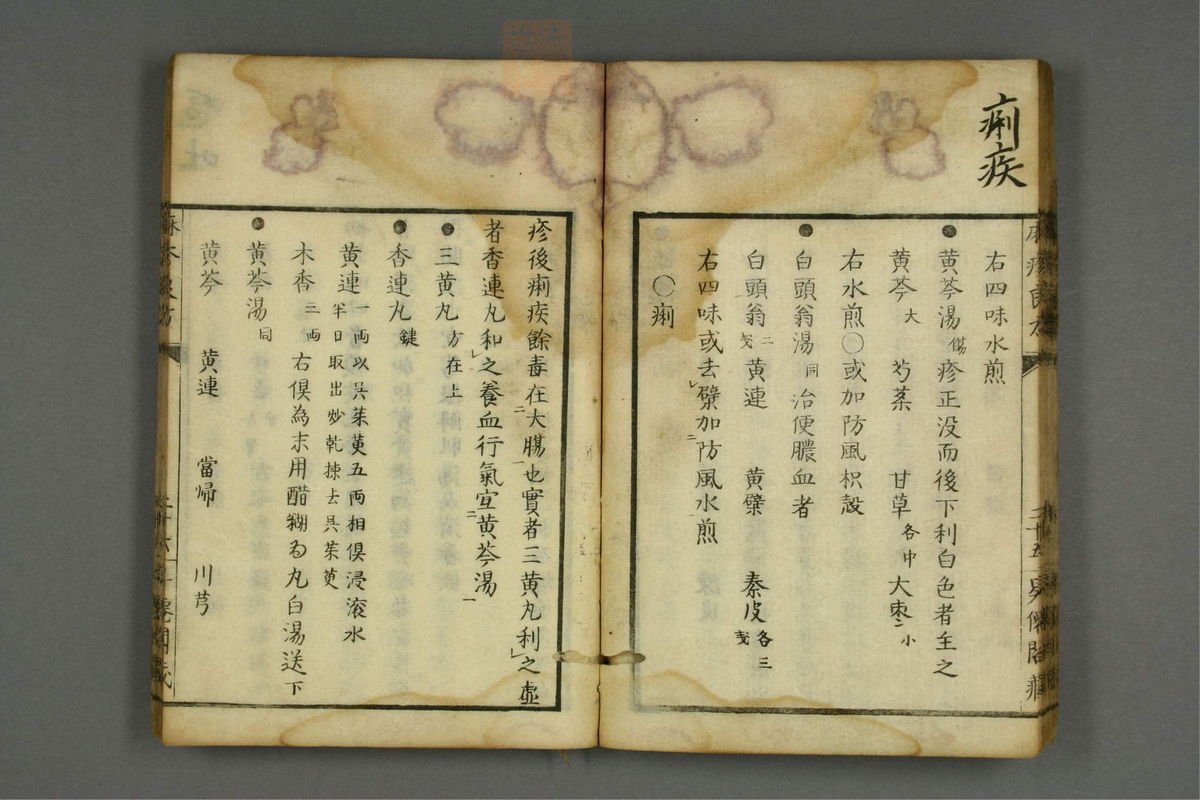 痢疾
右四味水煎
黄芩湯傷疹正没而後下利白色者主之
黄芩大 芍薬 甘草各中 大枣小
右水煎〇或加防風枳殻
白頭翁湯同治便膿血者
白頭翁二戔 黄連 黄檗 秦皮各三戔
右四味或去檗加防風水煎
〇痢
疹後痢疾餘毒在大腸也實者三黄丸利之虚
者香連丸和之養血行氣宜黄芩湯
三黄丸方在上
香連丸鍵
黄連一両以呉茱萸五両相倶浸滚水
半日取出炒乾揀去呉茱萸
木香二両 右倶為末用醋糊为丸白湯送下
黄芩湯同
黄芩 黄連 當帰 川芎